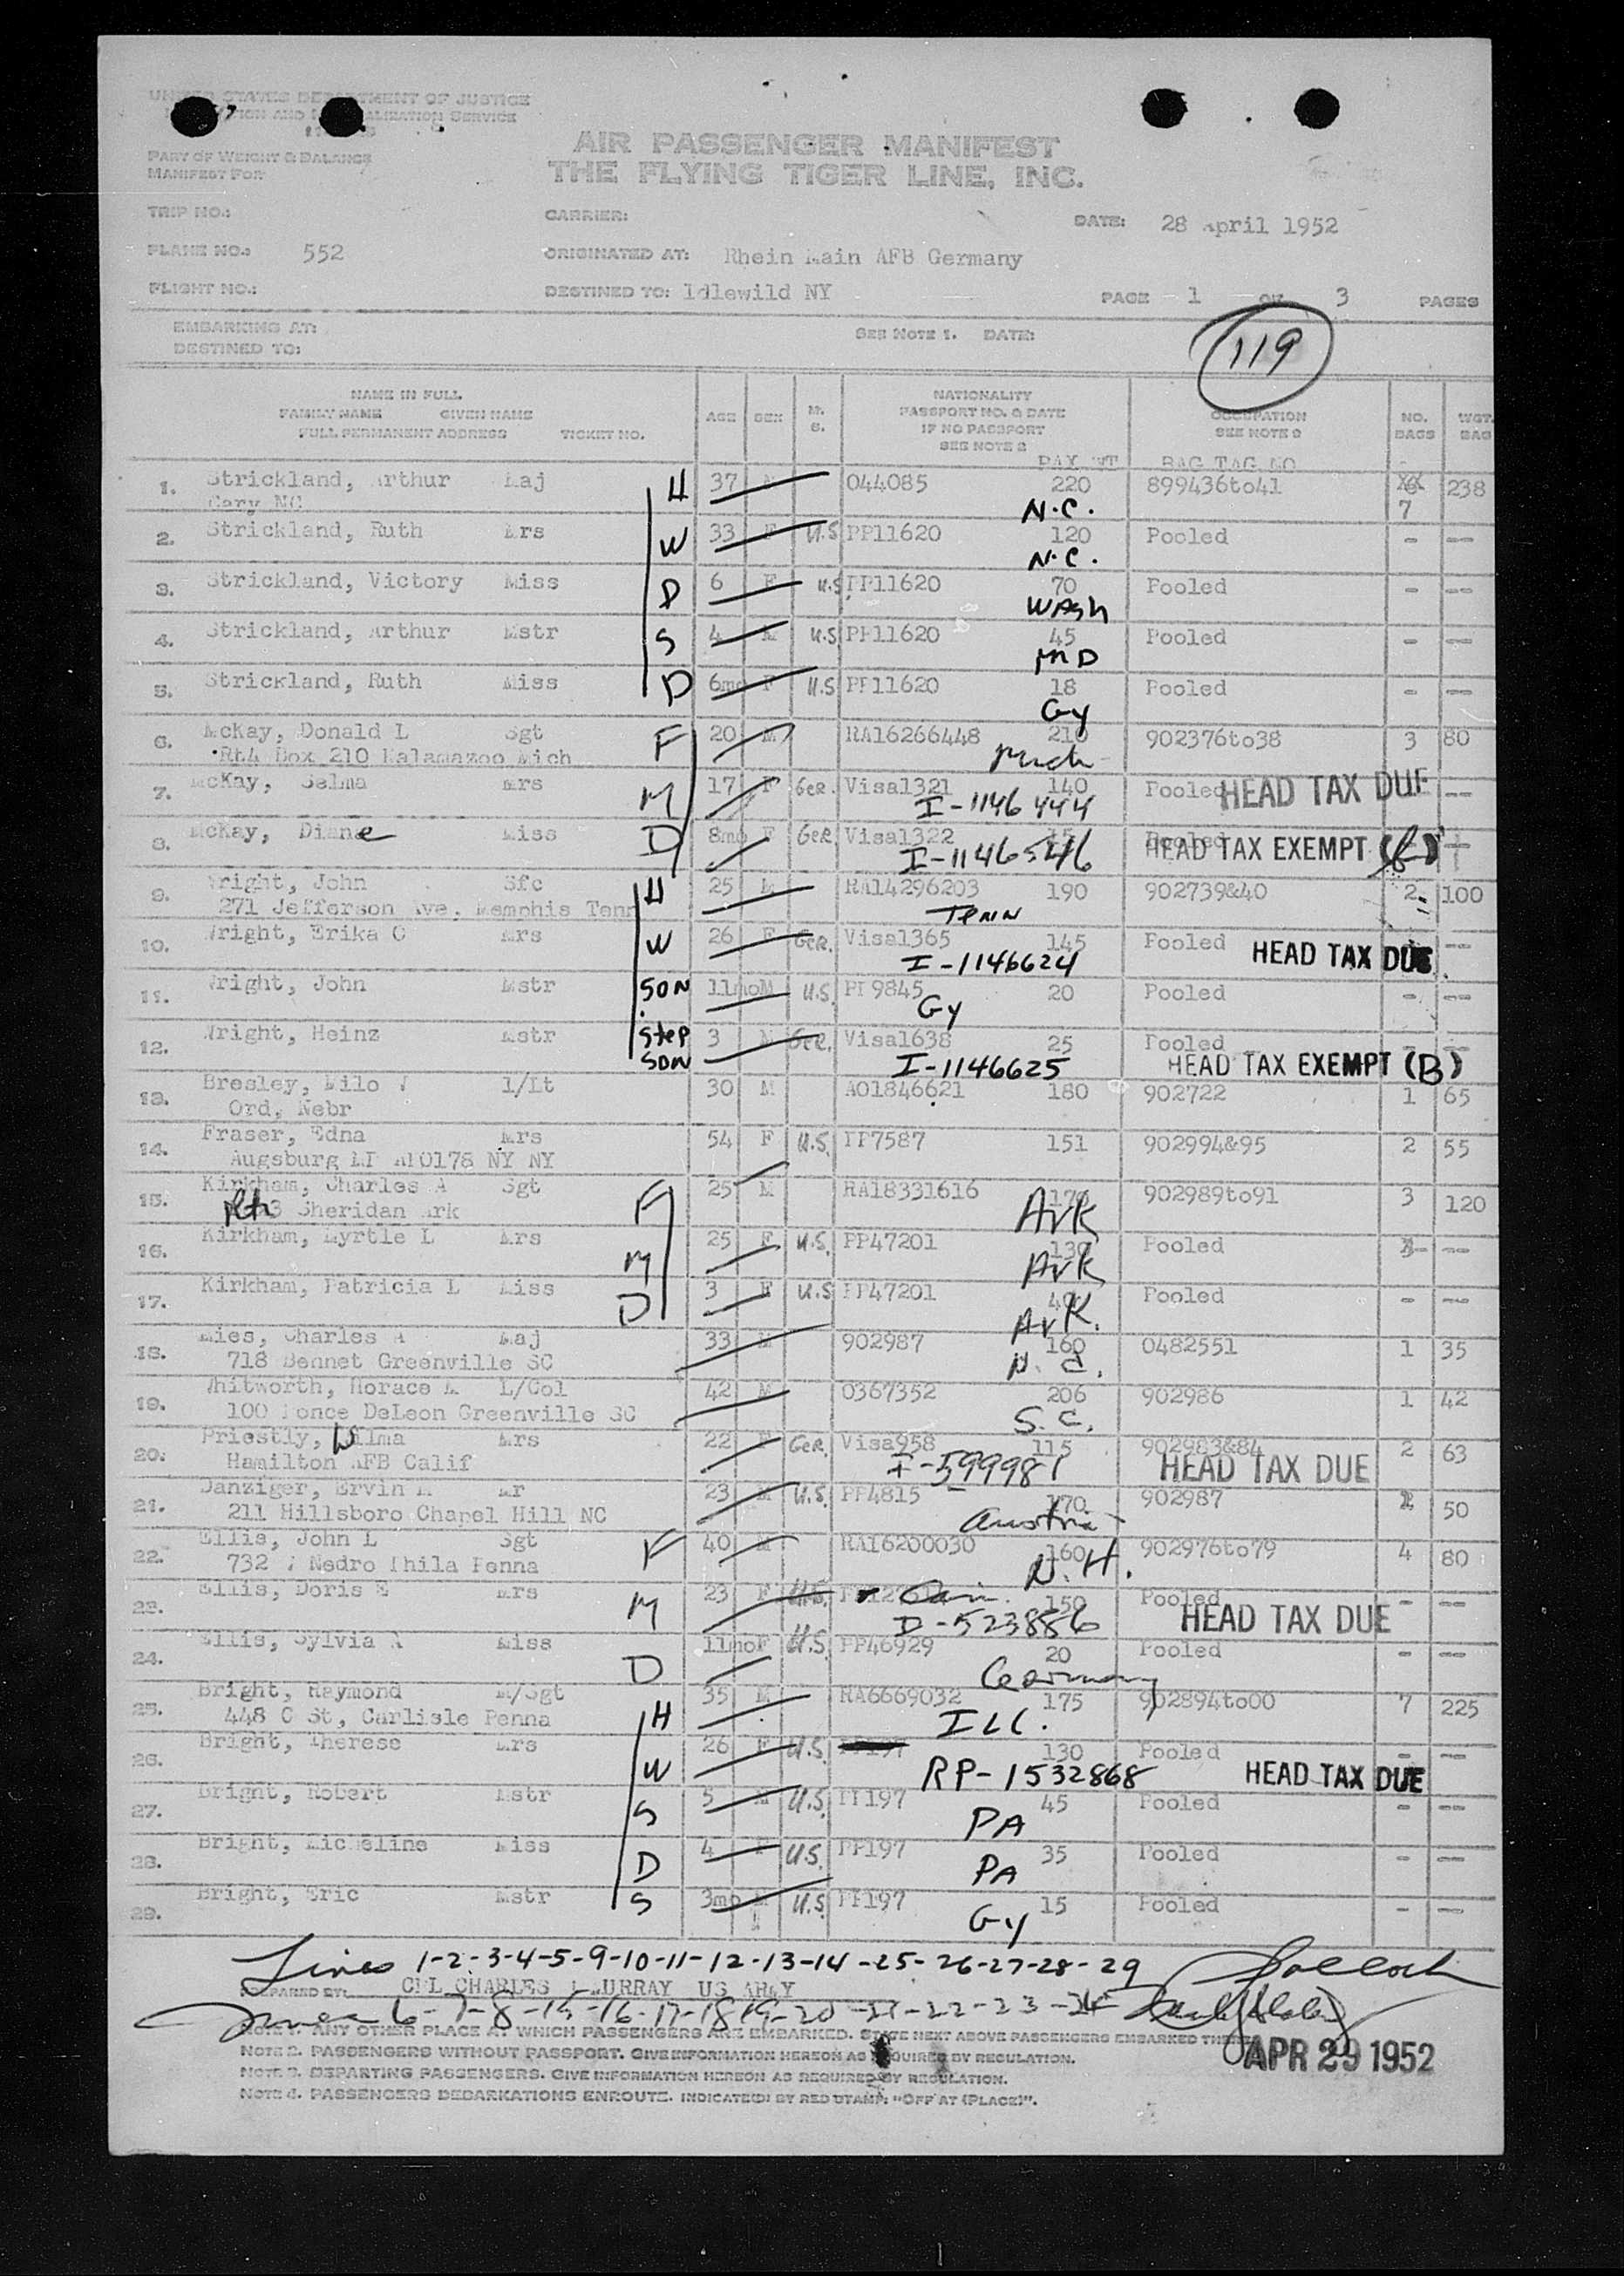 UNITED STATES DEPARTMENT OF JUSTICE
IMMIGRATION AND NATURALIZATION SERVICE
PART OF WEIGHT & BALANCE
MANIFEST FOR
AIR PASSENGER MANIFEST
THE FLYING TIGER LINE, INC.
TRIP NO.: CARRIER: DATE: 28 April 1952
PLANE NO.: 552 ORIGINATED AT: Rhein Main AFB Germany
FLIGHT NO.: DESTINED TO: Idlewild NY PAGE 1 OF 3 PAGES
EMBARKING AT: SEE NOTE 1. DATE:
DESTINED TO:
119
NAME IN FULL
FAMILY NAME GIVEN NAME
FULL PERMANENT ADDRESS TICKET NO.
AGE SEX M. S.
NATIONALITY
PASSPORT NO. & DATE
IF NO PASSPORT
SEE NOTE 2
OCCUPATION
SEE NOTE 2
NO. BAGS WGT. BAG
PAX WT BAG TAG NO
1. Strickland, Arthur Maj H 37 M 044085 220 899436to41 7 238
Cary NC N.C.
2. Strickland, Ruth Mrs W 33 F U.S PP11620 120 Pooled - --
N.C.
3. Strickland, Victory Miss D 6 F U.S PP11620 70 Pooled - --
WASH
4. Strickland, Arthur Mstr S 4 M U.S PP11620 45 Pooled - --
MD
5. Strickland, Ruth Miss D 6mo F U.S PP11620 18 Pooled - --
Gy
6. McKay, Donald L Sgt F 20 M RA16266448 210 902376to38 3 80
Rt4 Box 210 Kalamazoo Mich Mich
7. McKay, Selma Mrs M 17 F Ger. Visa1321 140 Pooled HEAD TAX DUE --
I-1146444
8. McKay, Diane Miss D 8mo F Ger Visa1322 15 Pooled
I-1146546 HEAD TAX EXEMPT
9. Wright, John Sfc H 25 M RA14296203 190 902739&40 2 100
271 Jefferson Ave. Memphis Tenn Tenn
10. Wright, Erika C Mrs W 26 F Ger. Visa1365 145 Pooled HEAD TAX DUE --
I-1146624
11. Wright, John Mstr SON 11mo M U.S. PP9845 20 Pooled - --
Gy
12. Wright, Heinz Mstr Step SON 3 M Ger. Visa1638 25 Pooled - --
I-1146625 HEAD TAX EXEMPT (B)
13. Bresley, Wilo W 1/Lt 30 M AO1846621 180 902722 1 65
Ord, Nebr
14. Fraser, Edna Mrs 54 F U.S. PP7587 151 902994&95 2 55
Augsburg MP APO178 NY NY
15. Kirkham, Charles A Sgt F 25 M RA18331616 170 902989to91 3 120
Rt3 Sheridan Ark Ark
16. Kirkham, Myrtle L Mrs M 25 F U.S. PP47201 130 Pooled - --
Ark
17. Kirkham, Patricia L Miss D 3 F U.S PP47201 40 Pooled - --
Ark.
18. Mies, Charles A Maj 33 M 902987 160 0482551 1 35
718 Bennet Greenville SC
19. Whitworth, Horace M. L/Col 42 M 0367352 206 902986 1 42
100 Ponce DeLeon Greenville SC S.C.
20. Priestly, Wilma Mrs 22 F Ger. Visa958 115 902983&84 2 63
Hamilton AFB Calif I-599981 HEAD TAX DUE
21. Danziger, Ervin M Mr 23 M U.S. PP4815 170 902987 50
211 Hillsboro Chapel Hill NC Austria
22. Ellis, John L Sgt F 40 M RA16200030 160 902976to79 4 80
732 W Nedro Phila Penna N.H.
23. Ellis, Doris E Mrs M 23 F U.S. 150 Pooled - --
D-523886 HEAD TAX DUE
24. Ellis, Sylvia A Miss D 11mo F U.S PP46929 20 Pooled - --
Germany
25. Bright, Raymond M/Sgt H 35 M RA6669032 175 902894to00 7 225
448 C St, Carlisle Penna ILL.
26. Bright, Therese Mrs W 26 F U.S. PP197 130 Pooled - --
RP-1532868 HEAD TAX DUE
27. Bright, Robert Mstr S 5 M U.S. PP197 45 Pooled - --
PA
28. Bright, Micheline Miss D 4 F U.S. PP197 35 Pooled - --
PA
29. Bright, Eric Mstr S 3mo M U.S. PP197 15 Pooled - --
Gy
Lines 1-2-3-4-5-9-10-11-12-13-14-25-26-27-28-29
PREPARED BY: CPL CHARLES MURRAY US ARMY
6-7-8-15-16-17-18-19-20-21-22-23-24
NOTE 1. ANY OTHER PLACE AT WHICH PASSENGERS ARE EMBARKED. STATE NEXT ABOVE PASSENGERS EMBARKED THERE.
NOTE 2. PASSENGERS WITHOUT PASSPORT. GIVE INFORMATION HEREON AS REQUIRED BY REGULATION.
NOTE 3. DEPARTING PASSENGERS. GIVE INFORMATION HEREON AS REQUIRED BY REGULATION.
NOTE 4. PASSENGERS DEBARKATIONS ENROUTE. INDICATE(D) BY RED STAMP: "OFF AT (PLACE)".
APR 29 1952